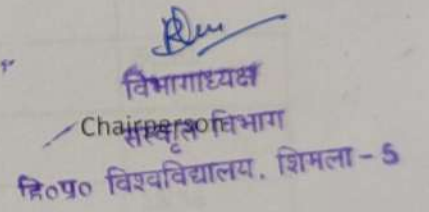 विभागाध्यक्ष
Chairperson
संस्कृत विभाग
हि०प्र० विश्वविद्यालय. शिमला - 5